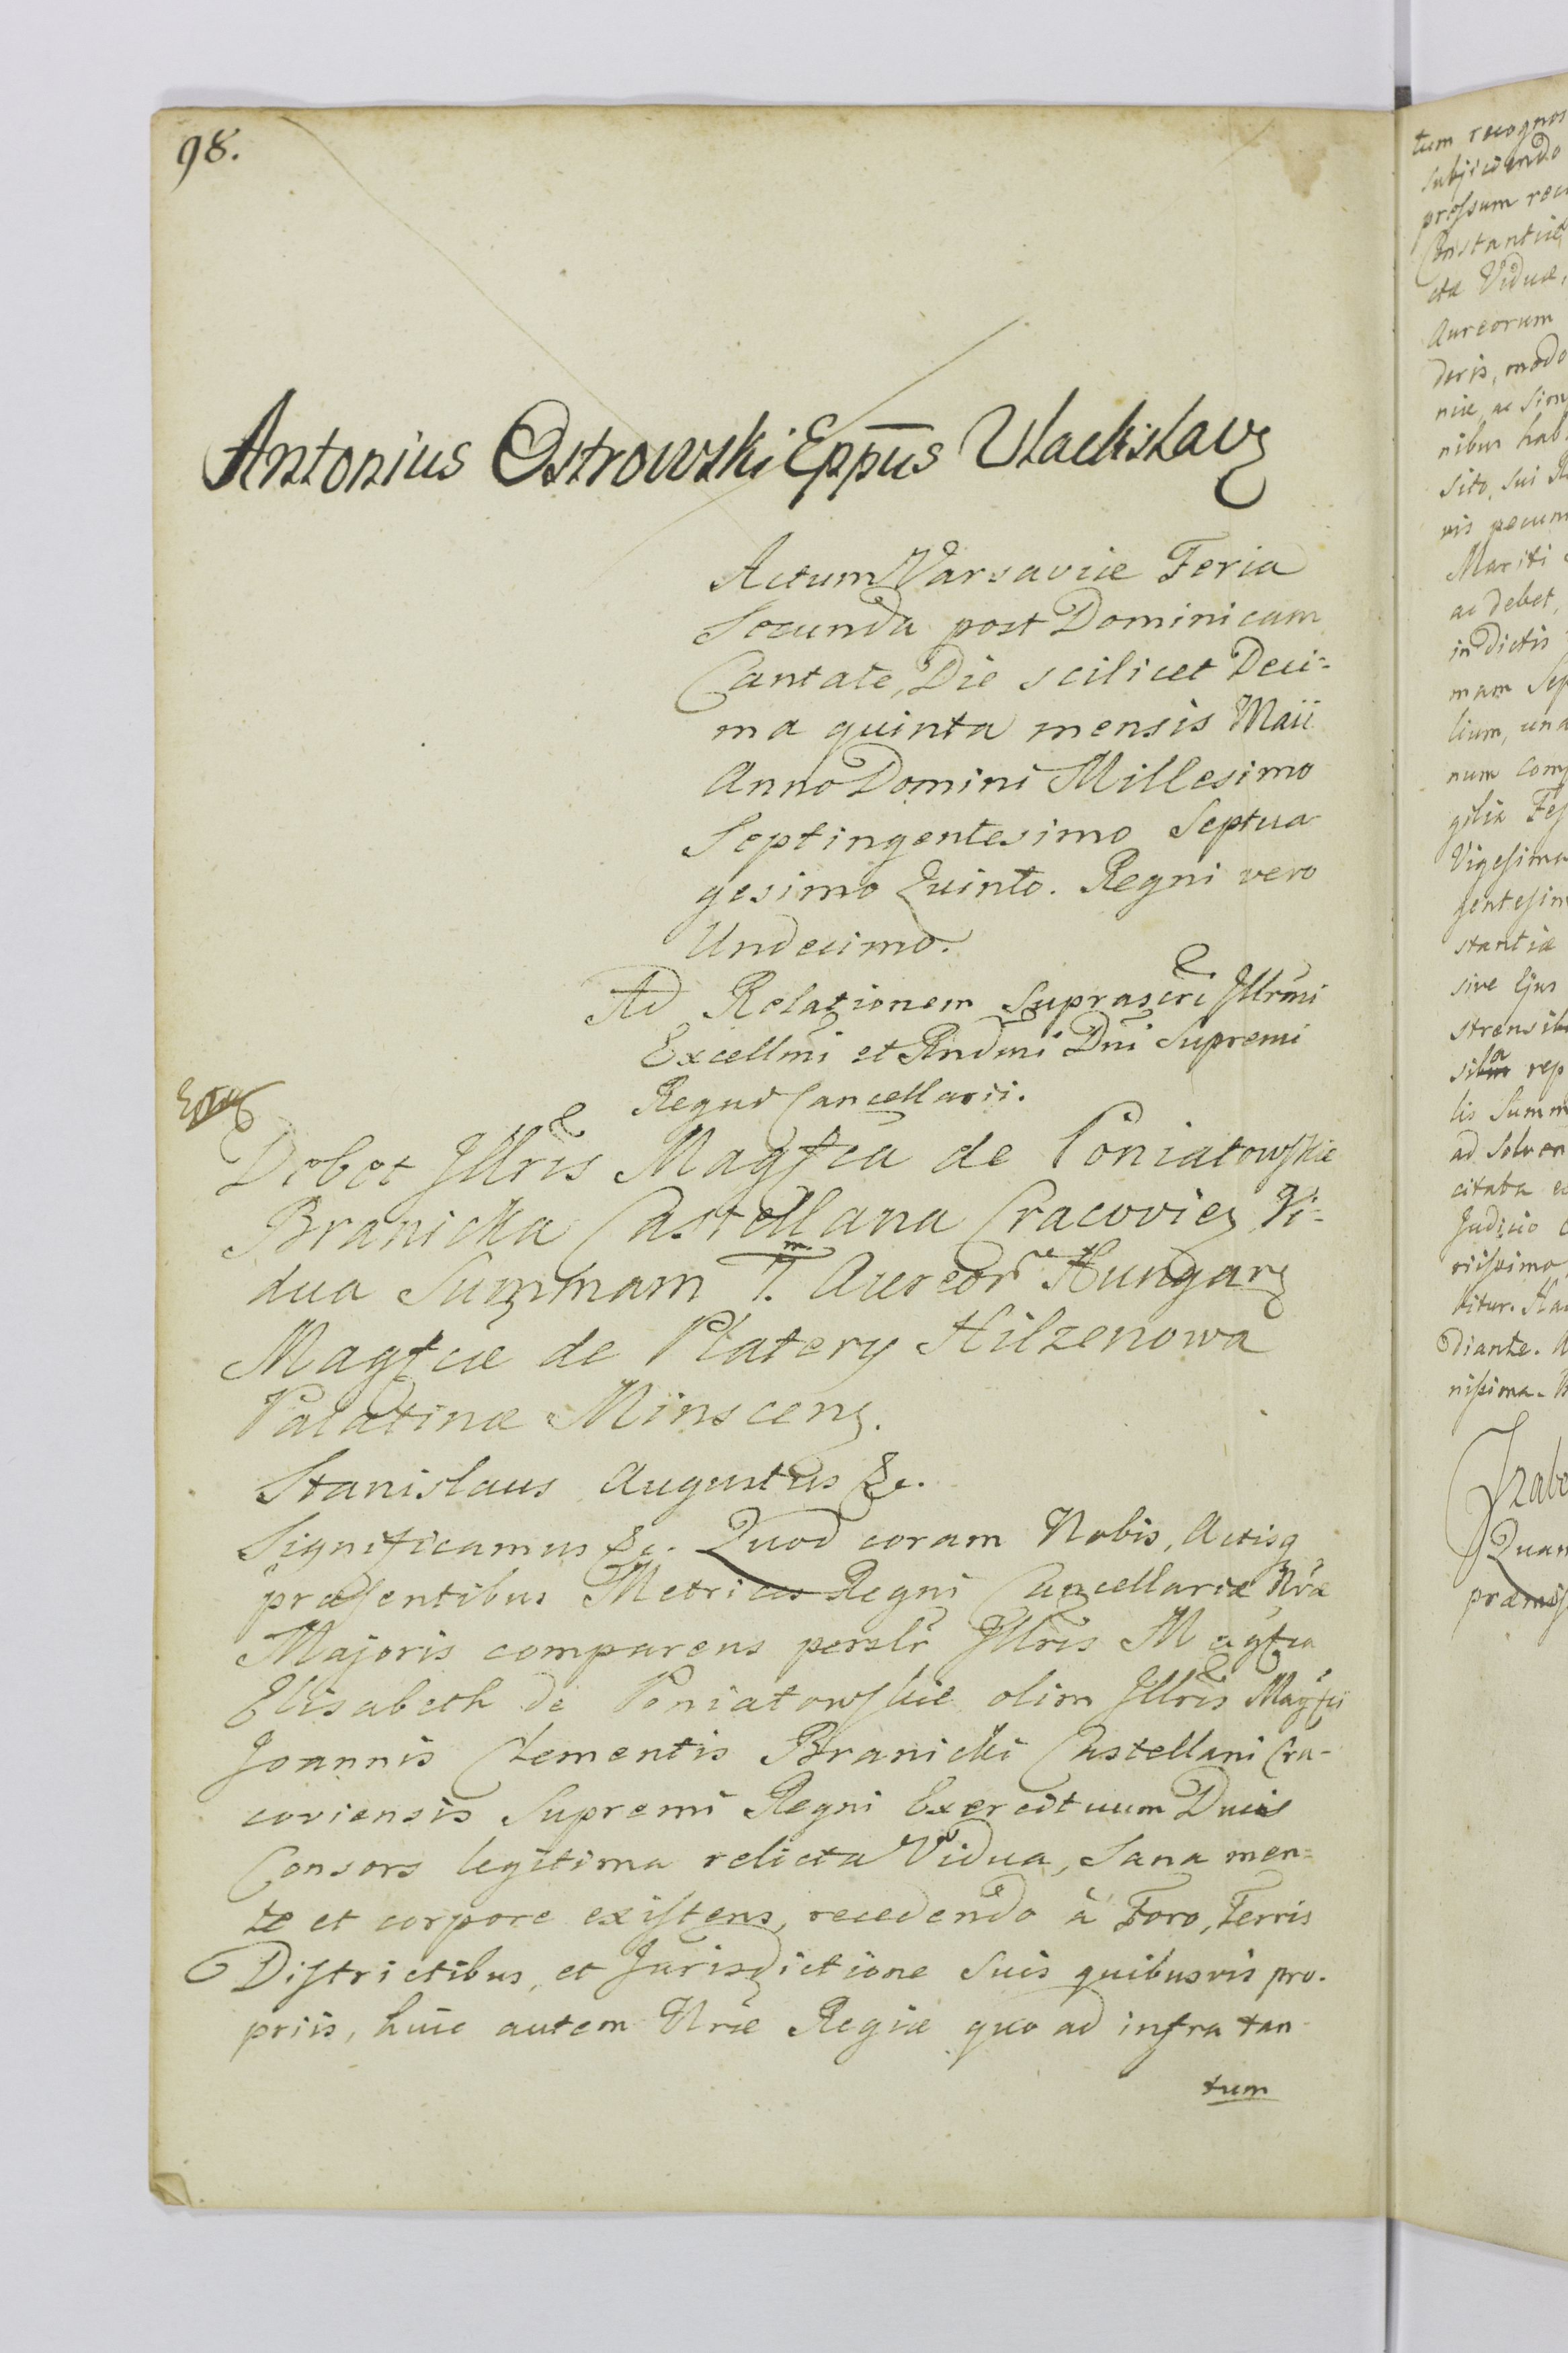 98.
Antonius Ostrowski Eppus Vladislav
Actum Varsaviæ Feria
Secunda post Dominicam
Cantate, Die scilicet Deci=
ma quinta mensis Maii
Anno Domini Millesimo
Septingentesimo Septua
gesimo Quinto. Regni vero
Undecimo.
Ad Relationem Suprascri Illrmi
Excellmi et Rndmi Dni Supremi
Regni Cancellarii.
Debet Illris Magfca de Poniatowskie
Branicka Castellana Cracovien Vi=
dua Summam 7.m Aureor Hungar
Magfcæ de Platery Hilzenowa
Palatinæ Minscen.
Stanislaus Augustus &c.
Significamus &c. Quod coram Nobis, Actisq
præsentibus Metrices Regni Cancellariæ Nræ
Majoris comparens persltr Illris Magfca
Elisabeth de Poniatowskie olim Illris Magfci
Joannis Clementis Branicki Castellani Cra-
coviensis Supremi Regni Exercituum Ducis
Consors legitima relicta Vidua, Sana men=
te et corpore existens, recedendo à Foro, Terris
Districtibus, et Jurisdictione Suis quibusvis pro.
priis, huic autem Nræ Regiæ quo ad infra tan
tum
tum recognos
subjiciendo
pressum rec
Constantiæ
cta Viduæ,
Aureorum
deris, modo
niæ, ac Sim
nibus hab
sito, sui R
vis pecun
Mariti
ac debet,
in Dictis
mam Sep
lium, una
num comp
gilia Fes
Vigesima
gentesim
stantiæ
sive Ejus
strensib
rep
lis Summ
ad solven
citata e
Judicio
riissimo
bitur. Ha
diante. A
nissima. B
Izabe
Quam
præmis